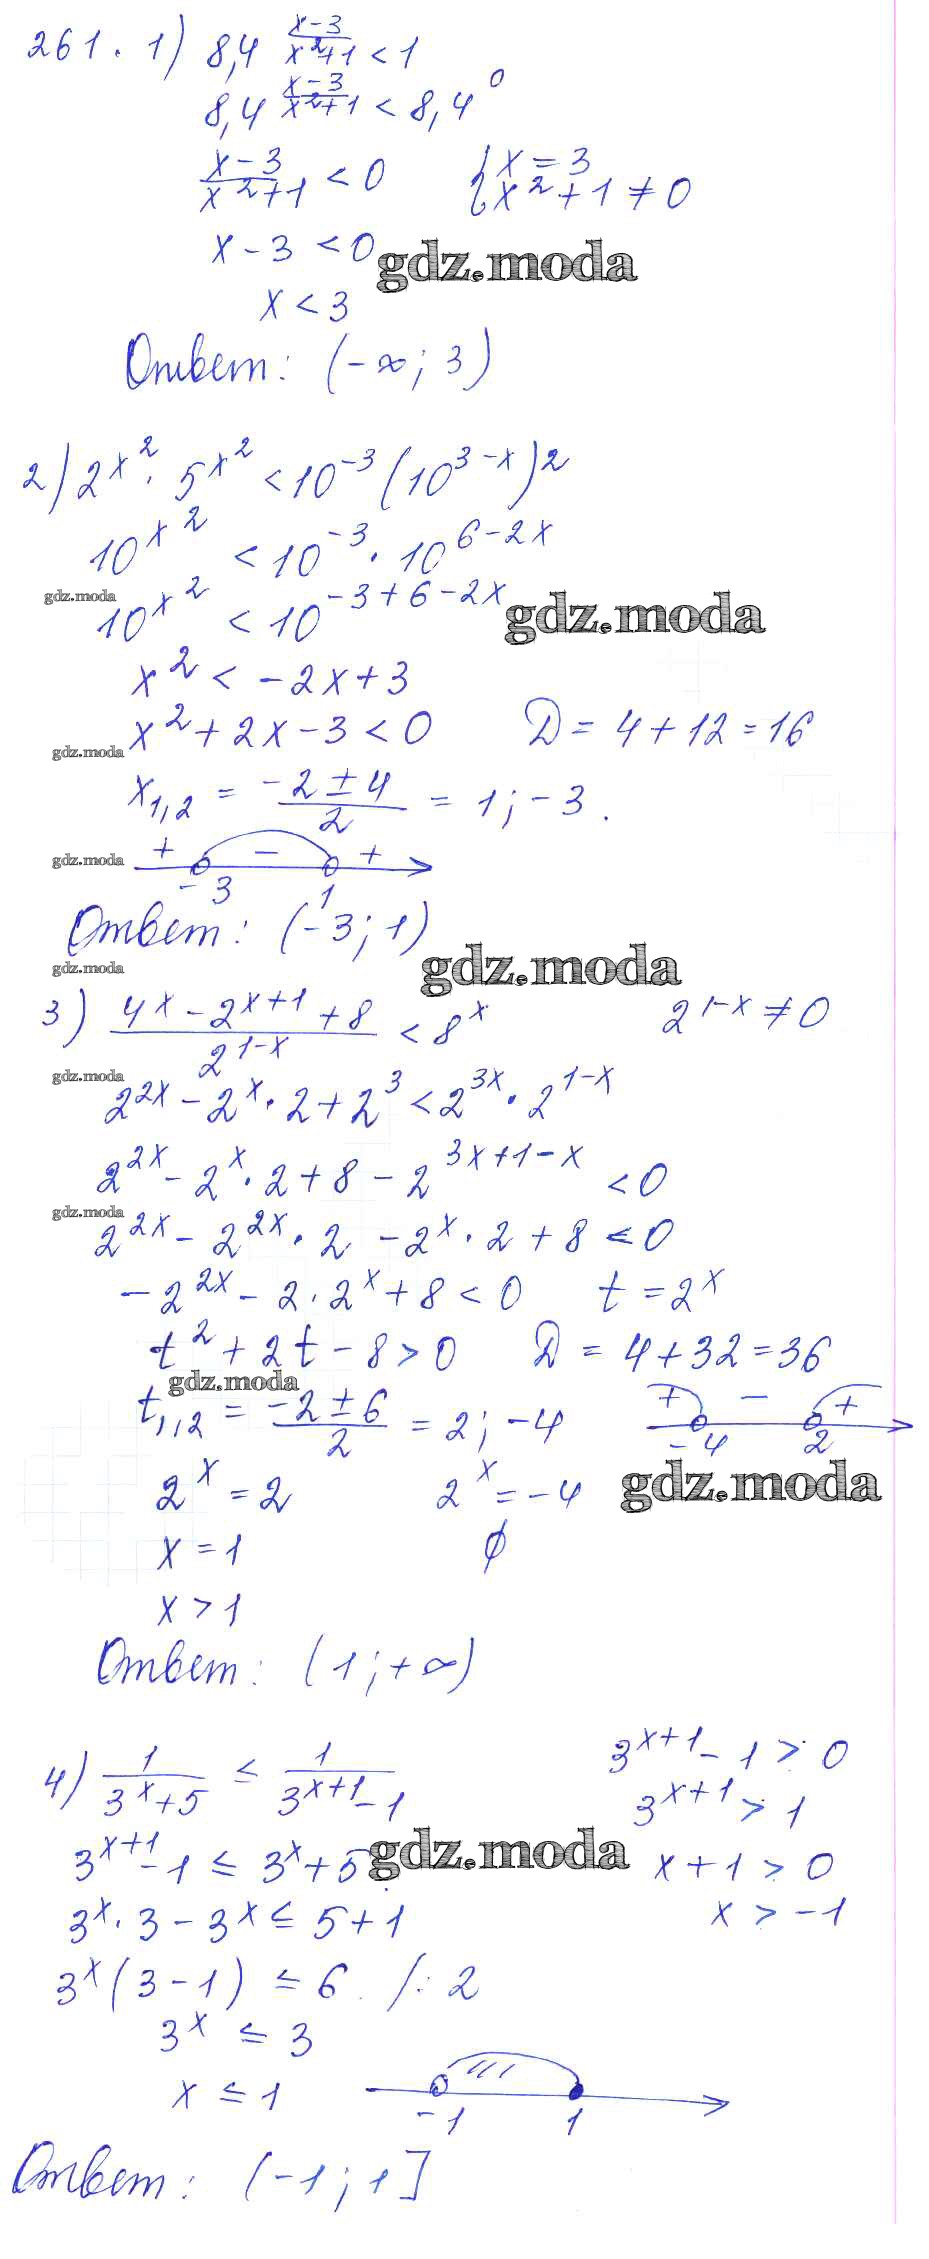 261. 1) 8,4^{\frac{x-3}{x^2+1}} < 1
8,4^{\frac{x-3}{x^2+1}} < 8,4^0
\frac{x-3}{x^2+1} < 0 { x = 3
x^2 + 1 ≠ 0
x - 3 < 0
gdz.moda
x < 3
Ответ: (-∞; 3)
2) 2^{x^2} · 5^{x^2} < 10^{-3} (10^{3-x})^2
10^{x^2} < 10^{-3} · 10^{6-2x}
gdz.moda
10^{x^2} < 10^{-3+6-2x}
gdz.moda
x^2 < -2x + 3
x^2 + 2x - 3 < 0 D = 4 + 12 = 16
gdz.moda
x_{1,2} = \frac{-2 ± 4}{2} = 1; -3.
gdz.moda
+ - +
-3 1
Ответ: (-3; 1)
gdz.moda
gdz.moda
3) \frac{4^x - 2^{x+1} + 8}{2^{1-x}} < 8^x 2^{1-x} ≠ 0
gdz.moda
2^{2x} - 2^x · 2 + 2^3 < 2^{3x} · 2^{1-x}
2^{2x} - 2^x · 2 + 8 - 2^{3x+1-x} < 0
gdz.moda
2^{2x} - 2^{2x} · 2 - 2^x · 2 + 8 < 0
-2^{2x} - 2 · 2^x + 8 < 0 t = 2^x
t^2 + 2t - 8 > 0 D = 4 + 32 = 36
gdz.moda
t_{1,2} = \frac{-2 ± 6}{2} = 2; -4 + - +
-4 2
2^x = 2 2^x = -4
gdz.moda
x = 1 ∅
x > 1
Ответ: (1; +∞)
4) \frac{1}{3^x+5} ≤ \frac{1}{3^{x+1}-1} 3^{x+1} - 1 > 0
3^{x+1} > 1
3^{x+1} - 1 ≤ 3^x + 5 x + 1 > 0
gdz.moda
3^x · 3 - 3^x ≤ 5 + 1 x > -1
3^x (3 - 1) ≤ 6 /: 2
3^x ≤ 3
x ≤ 1
-1 1
Ответ: (-1; 1]